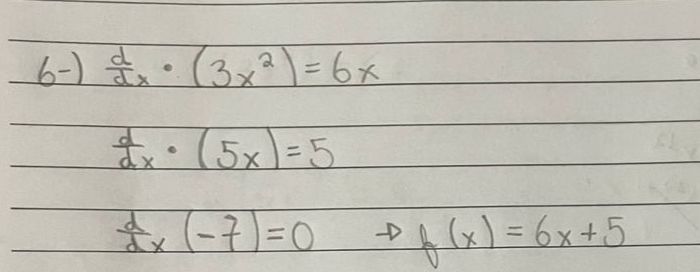 6-) d/dx • (3x²) = 6x
d/dx • (5x) = 5
d/dx (-7) = 0 → f(x) = 6x + 5